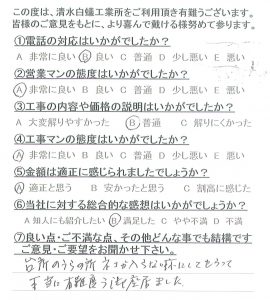 この度は、清水白蟻工業所をご利用頂き有難うございます。
皆様のご意見をもとに、より喜んで戴ける様努めて参ります。
①電話の対応はいかがでしたか?
A 非常に良い B 良い C 普通 D 少し悪い E 悪い
②営業マンの態度はいかがでしたか?
A 非常に良い B 良い C 普通 D 少し悪い E 悪い
③工事の内容や価格の説明はいかがでしたか?
A 大変解りやすかった B 普通 C 解りにくかった
④工事マンの態度はいかがでしたか?
A 非常に良い B 良い C 普通 D 少し悪い E 悪い
⑤金額は適正に感じられましたでしょうか?
A 適正と思う B 安かったと思う C 割高に感じた
⑥当社に対する総合的な感想はいかがでしょうか?
A 知人にも紹介したい B 満足した C やや不満 D 不満
⑦良い点・ご不満な点、その他どんな事でも結構です
ご意見・ご要望をお聞かせ下さい。
台所のうらの所 ネコが入らない様にしてもらって
本当に有難う御座居ました